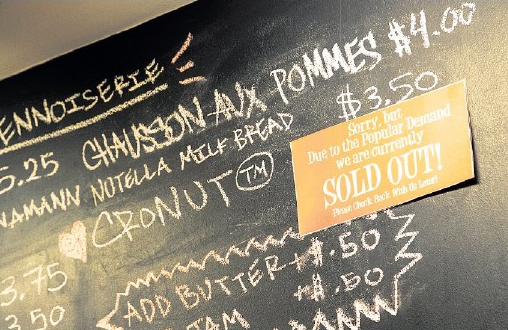 ENNOISERIE
5.25 CHAUSSON AUX POMMES $4.00
NAMANN NUTELLA MILK BREAD $3.50
CRONUT TM
Sorry, but
Due to the Popular Demand
we are currently
SOLD OUT!
Please Check Back With Us Later!
3.75 ADD BUTTER +.50
3.50 JAM +.50